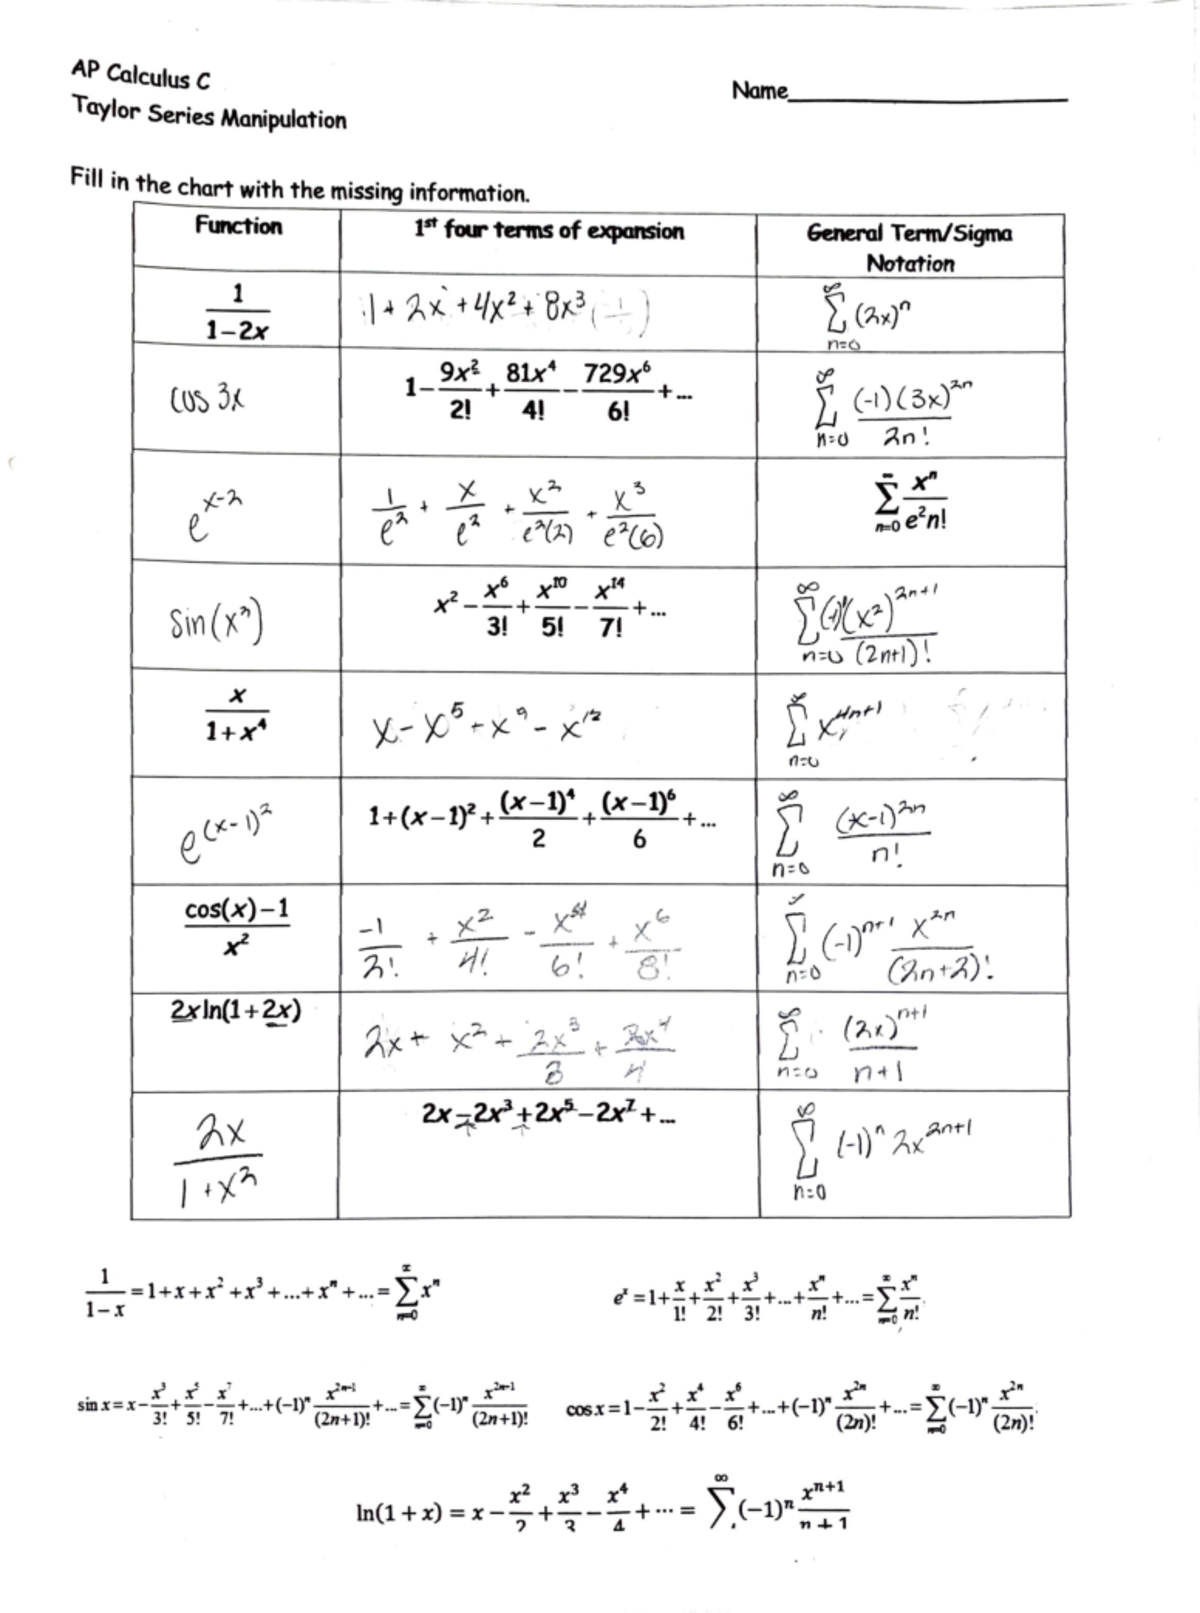 AP Calculus C
Name
Taylor Series Manipulation
Fill in the chart with the missing information.
Function | 1st four terms of expansion | General Term/Sigma Notation
1/(1-2x) | 1 + 2x + 4x² + 8x³ | ∑_{n=0}^{∞} (2x)^n
cos 3x | 1 - 9x²/2! + 81x⁴/4! - 729x⁶/6! + ... | ∑_{n=0}^{∞} (-1)(3x)^{2n}/2n!
e^{x-2} | 1/e² + x/e² + x²/e²(2) + x³/e²(6) | ∑_{n=0}^{∞} x^n/(e²n!)
sin(x²) | x² - x⁶/3! + x¹⁰/5! - x¹⁴/7! + ... | ∑_{n=0}^{∞} (-1)^n (x²)^{2n+1}/(2n+1)!
x/(1+x⁴) | x - x⁵ + x⁹ - x¹² | ∑_{n=0}^{∞} x^{4n+1}
e^{(x-1)²} | 1+(x-1)² + (x-1)⁴/2 + (x-1)⁶/6 + ... | ∑_{n=0}^{∞} (x-1)^{2n}/n!
(cos(x)-1)/x² | -1/2! + x²/4! - x⁴/6! + x⁶/8! | ∑_{n=0}^{∞} (-1)^{n+1} x^{2n}/(2n+2)!
2x ln(1+2x) | 2x + x² + 2x³/3 + x⁴/4 | ∑_{n=0}^{∞} (2x)^{n+1}/(n+1)
2x/(1+x²) | 2x - 2x³ + 2x⁵ - 2x⁷ + ... | ∑_{n=0}^{∞} (-1)^n 2x^{2n+1}
1/(1-x) = 1+x+x²+x³+...+x^n+... = ∑_{n=0}^{∞} x^n
e^x = 1 + x/1! + x²/2! + x³/3! + ... + x^n/n! + ... = ∑_{n=0}^{∞} x^n/n!
sin x = x - x³/3! + x⁵/5! - x⁷/7! + ... + (-1)^n x^{2n-1}/(2n+1)! + ... = ∑_{n=0}^{∞} (-1)^n x^{2n-1}/(2n+1)!
cos x = 1 - x²/2! + x⁴/4! - x⁶/6! + ... + (-1)^n x^{2n}/(2n)! + ... = ∑_{n=0}^{∞} (-1)^n x^{2n}/(2n)!
ln(1 + x) = x - x²/2 + x³/3 - x⁴/4 + ⋯ = ∑^{∞} (-1)^n x^{n+1}/(n+1)